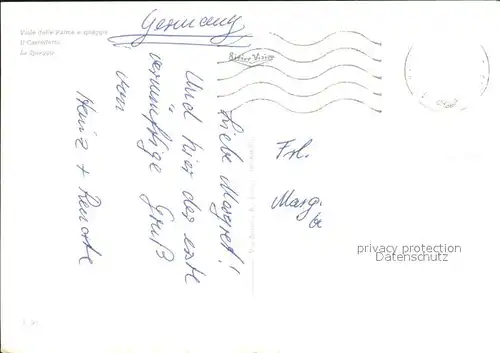 Viale delle Palme e spiaggia
Il Castelletto
La Spiaggia
Germany
Liebe Margret!
Und hier der erste
vernünftige Gruß
von
Heinz + Renate
Frl.
Marg
privacy protection
Datenschutz